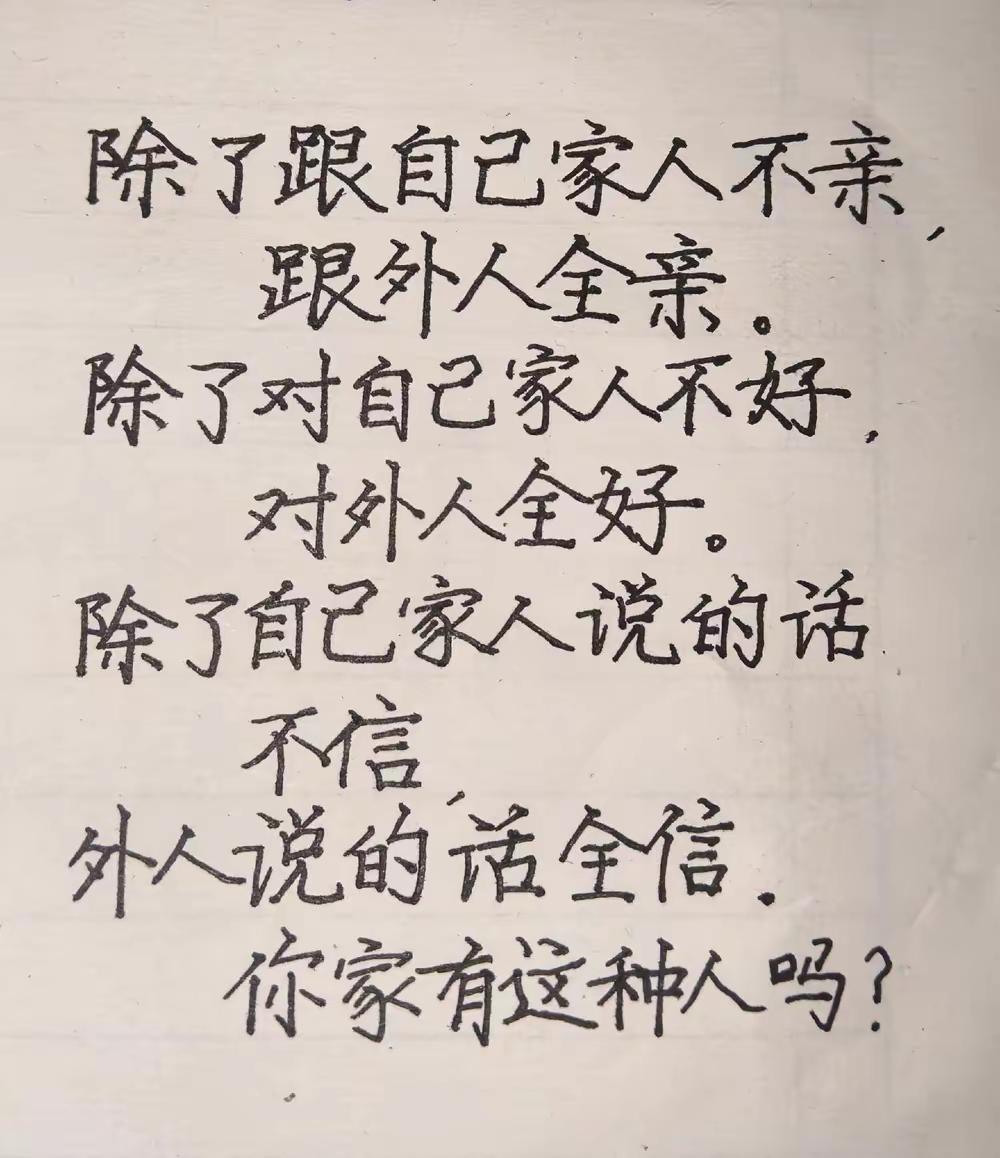 除了跟自己家人不亲,
跟外人全亲。
除了对自己家人不好,
对外人全好。
除了自己家人说的话
不信,
外人说的话全信.
你家有这种人吗?